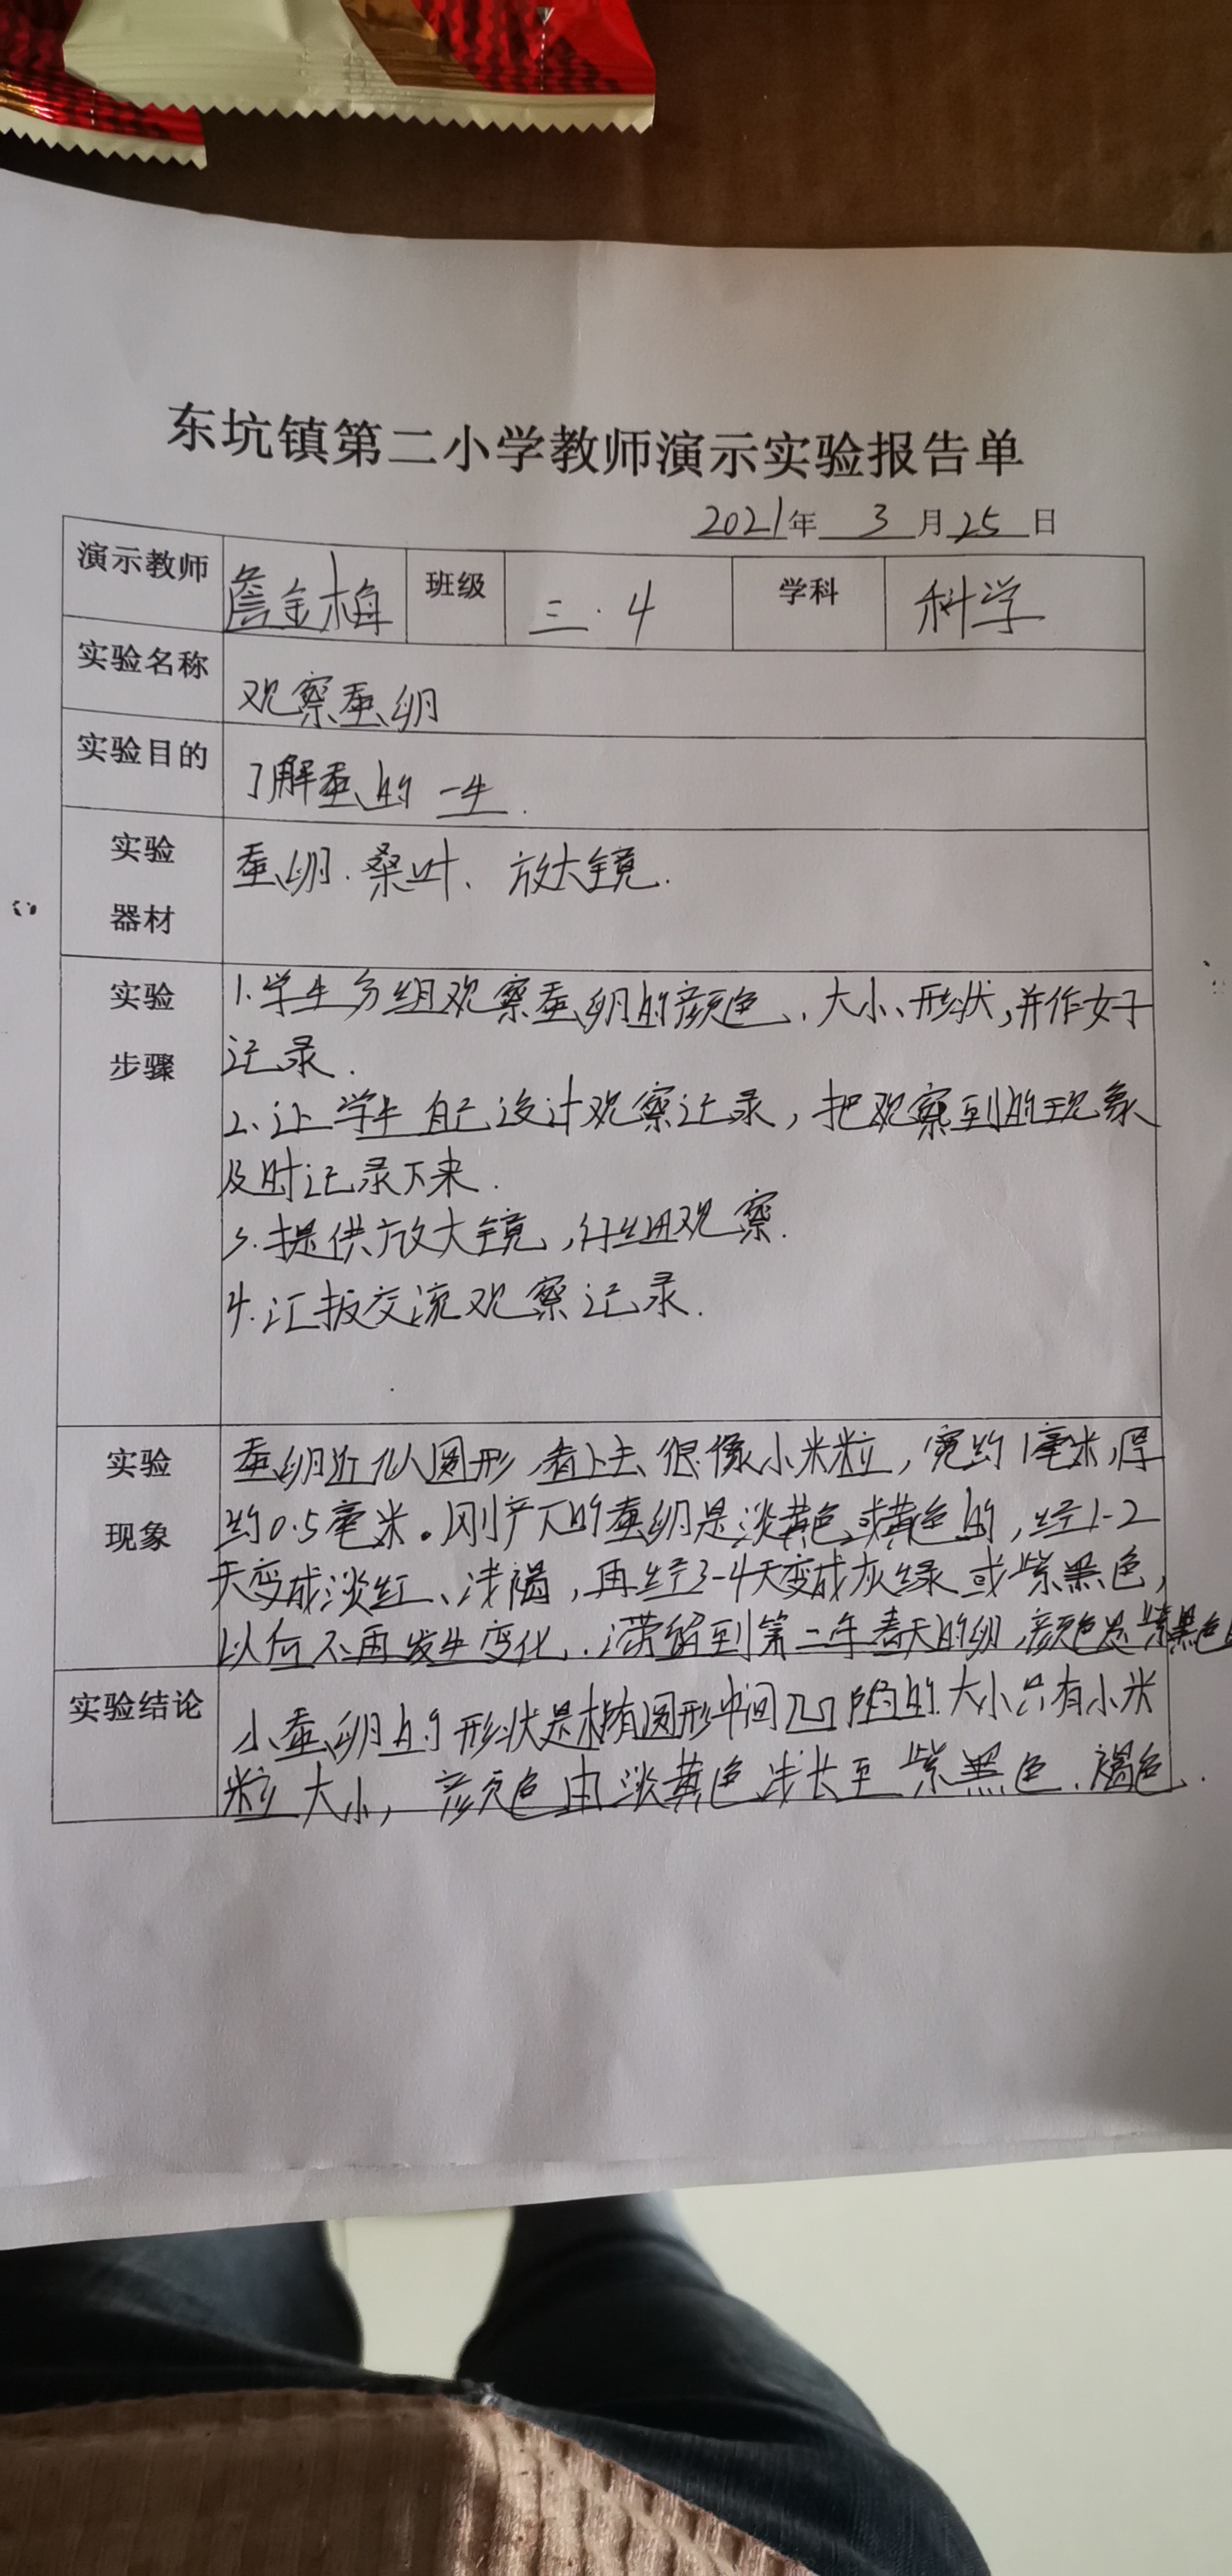 东坑镇第二小学教师演示实验报告单
2021年 3月25日
演示教师 詹金梅 班级 三.4 学科 科学
实验名称 观察蚕卵
实验目的 了解蚕的一生.
实验器材 蚕卵.桑叶、放大镜.
实验步骤
1.学生分组观察蚕卵的颜色、大小、形状,并作好
记录.
2、让学生自己设计观察记录,把观察到的现象
及时记录下来.
3.提供放大镜,仔细观察.
4.汇报交流观察记录.
实验现象
蚕卵近似圆形,看上去很像小米粒,宽约1毫米,厚
约0.5毫米。刚产下的蚕卵是淡黄色或黄色的,经1-2
天变成淡红、浅褐,再经3-4天变成灰绿或紫黑色,
以后不再发生变化..滞留到第二年春天的卵,颜色是紫黑色
实验结论
蚕卵的形状是椭圆形中间凹陷的.大小只有小米
粒大小,颜色由淡黄色 至紫黑色.褐色.